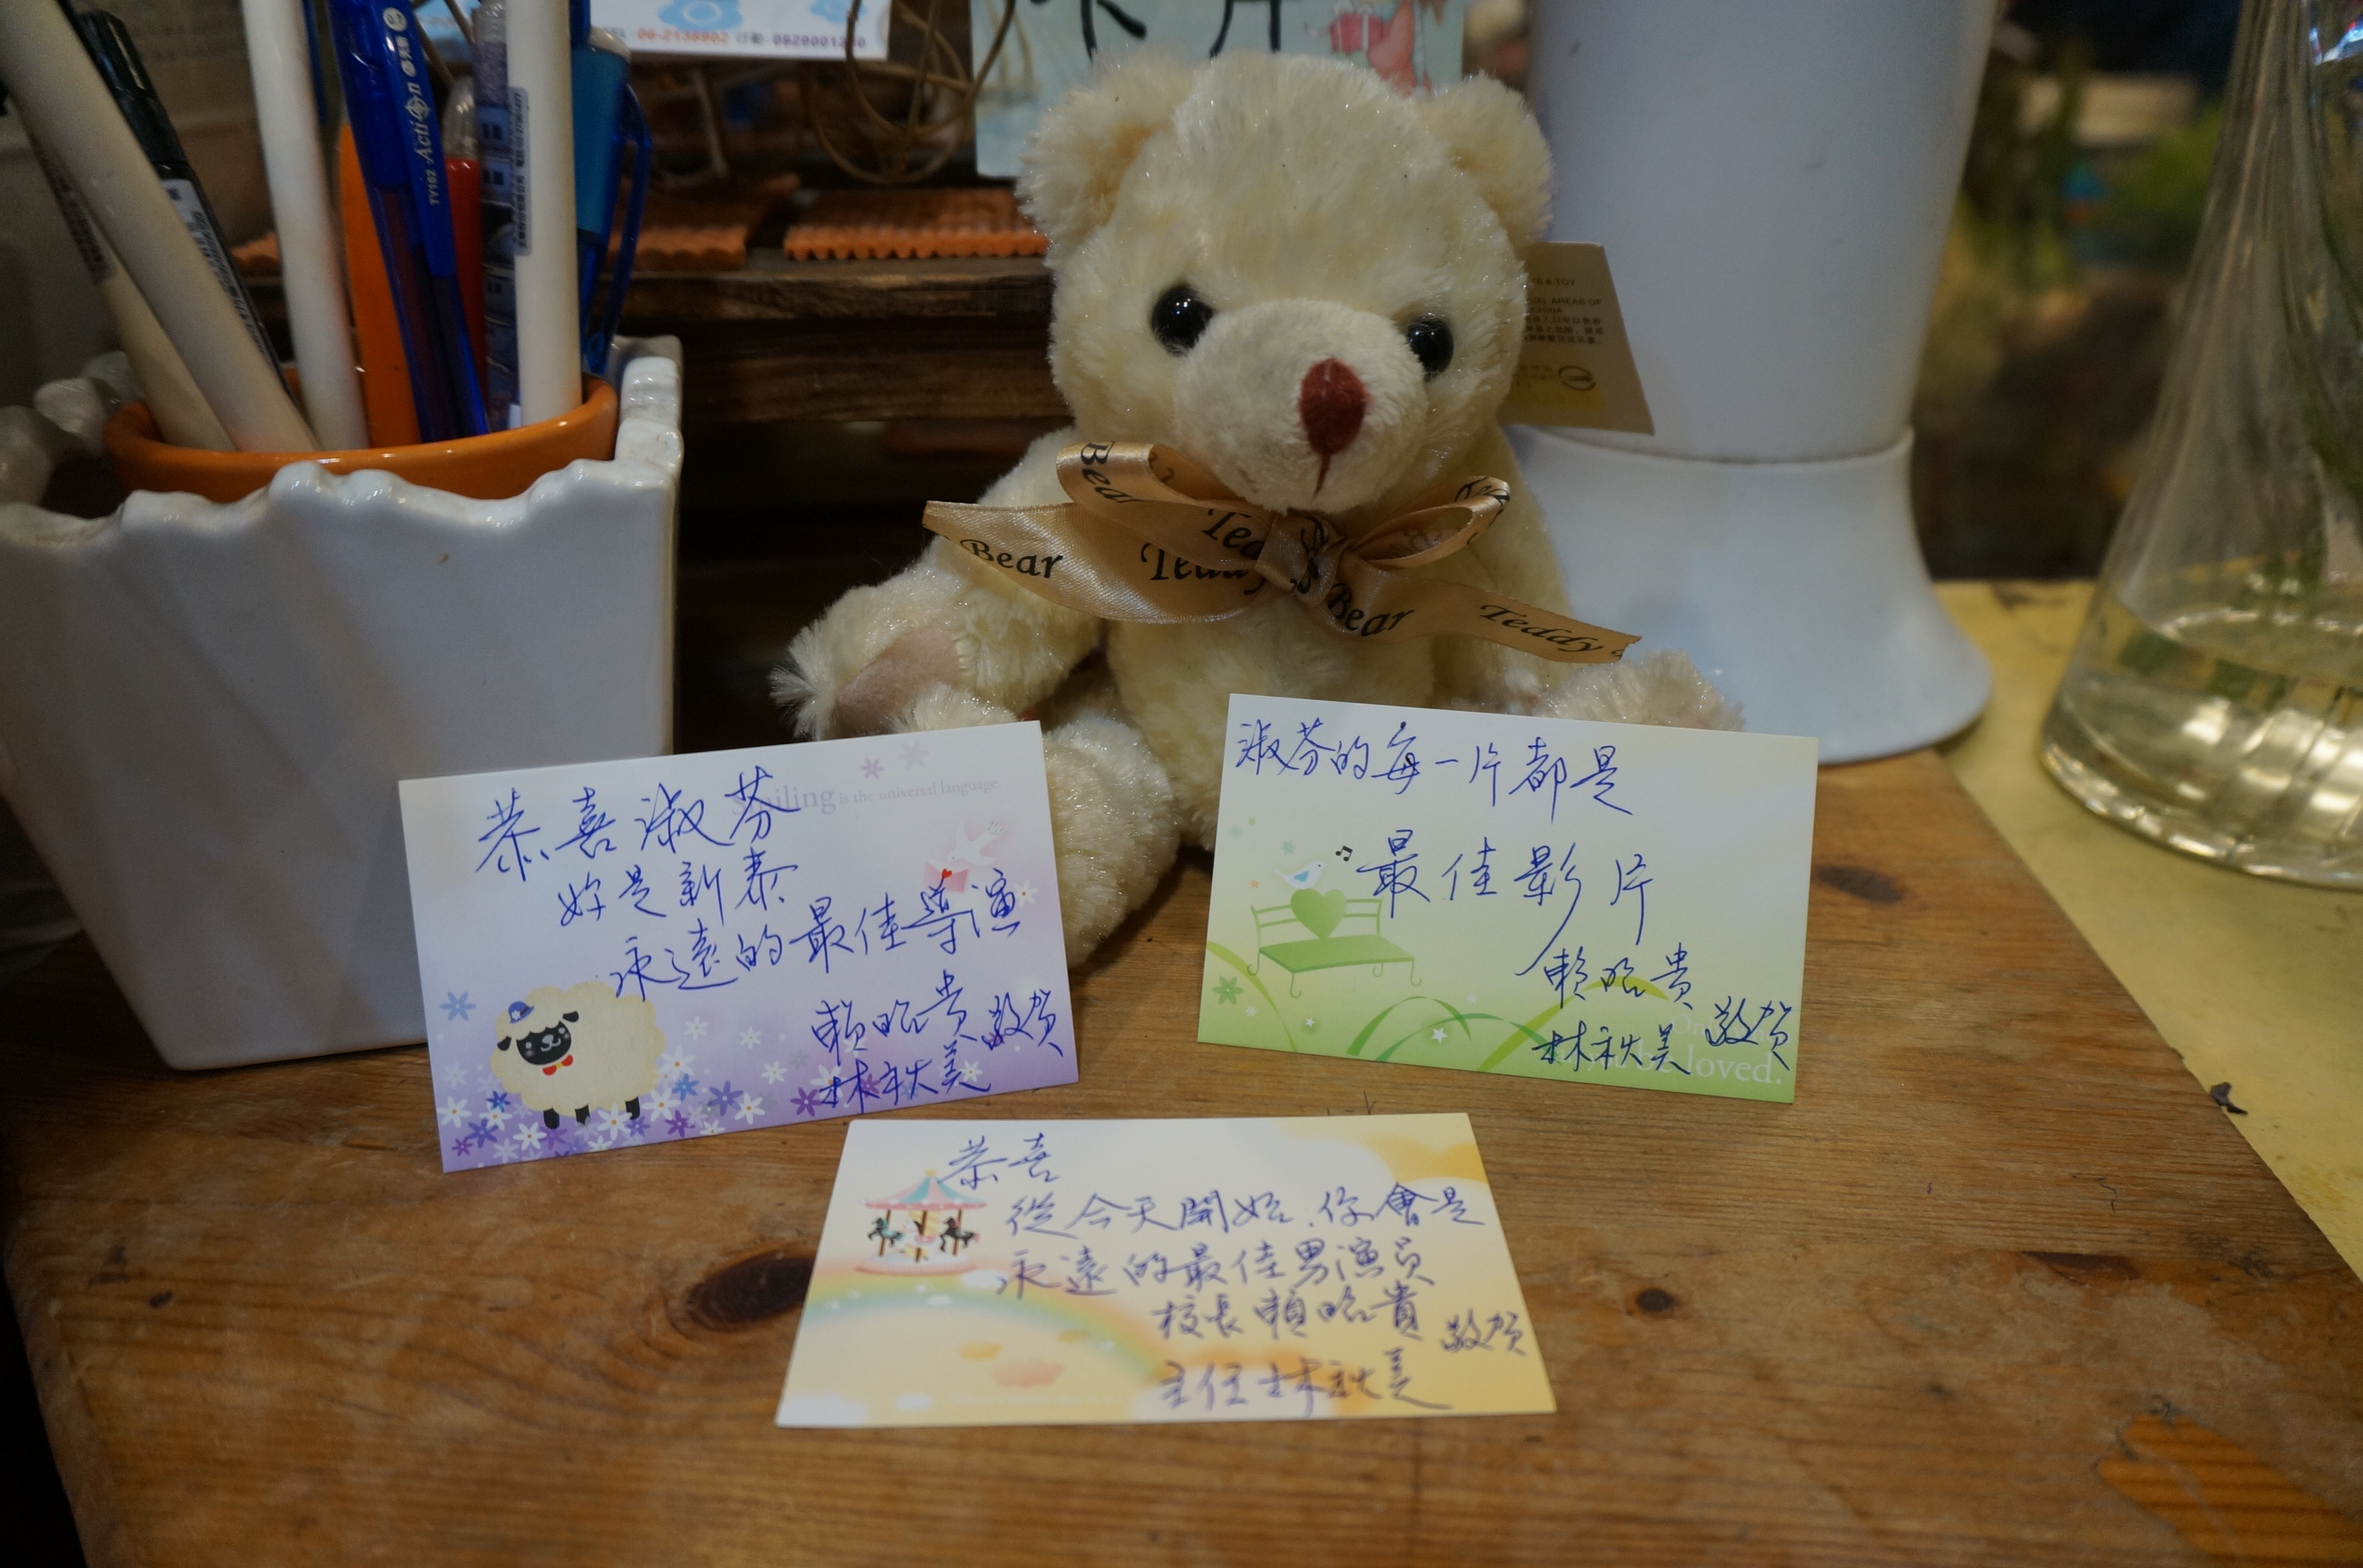 TEL: 06-2138902 行動: 0929001230
卡片
Action
TY102
& TOY
Bear
Teddy
Bear
Teddy
Bear
Teddy
Smiling is the universal language.
恭喜淑芬
妳是新泰
永遠的最佳導演
賴昭貴
林秋美 敬賀
淑芬的每一片都是
最佳影片
賴昭貴
林秋美 敬賀
be loved.
恭喜
從今天開始,你會是
永遠的最佳男演員
校長賴昭貴
主任林秋美 敬賀